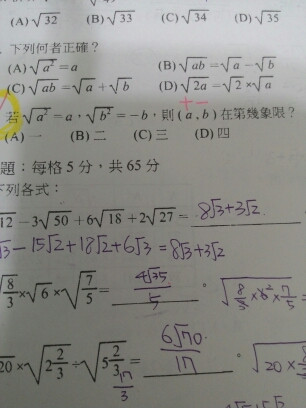 (A) √32 (B) √33 (C) √34 (D) √35
下列何者正確？
(A) √a² = a (B) √ab = √a − √b
(C) √ab = √a + √b (D) √2a = √2 × √a
+ −
若 √a² = a，√b² = −b，則 (a, b) 在第幾象限？
(A) 一 (B) 二 (C) 三 (D) 四
題：每格 5 分，共 65 分
下列各式：
12 − 3√50 + 6√18 + 2√27 = 8√3+3√2
√3 − 15√2 + 18√2 + 6√3 = 8√3+3√2
√8/3 × √6 × √7/5 = 4√35/5 。 √8/3 × 6² × 7/5 =
20 × √2 2/3 ÷ √5 2/3 = 6√70/17 。 √20 × 8
17/3